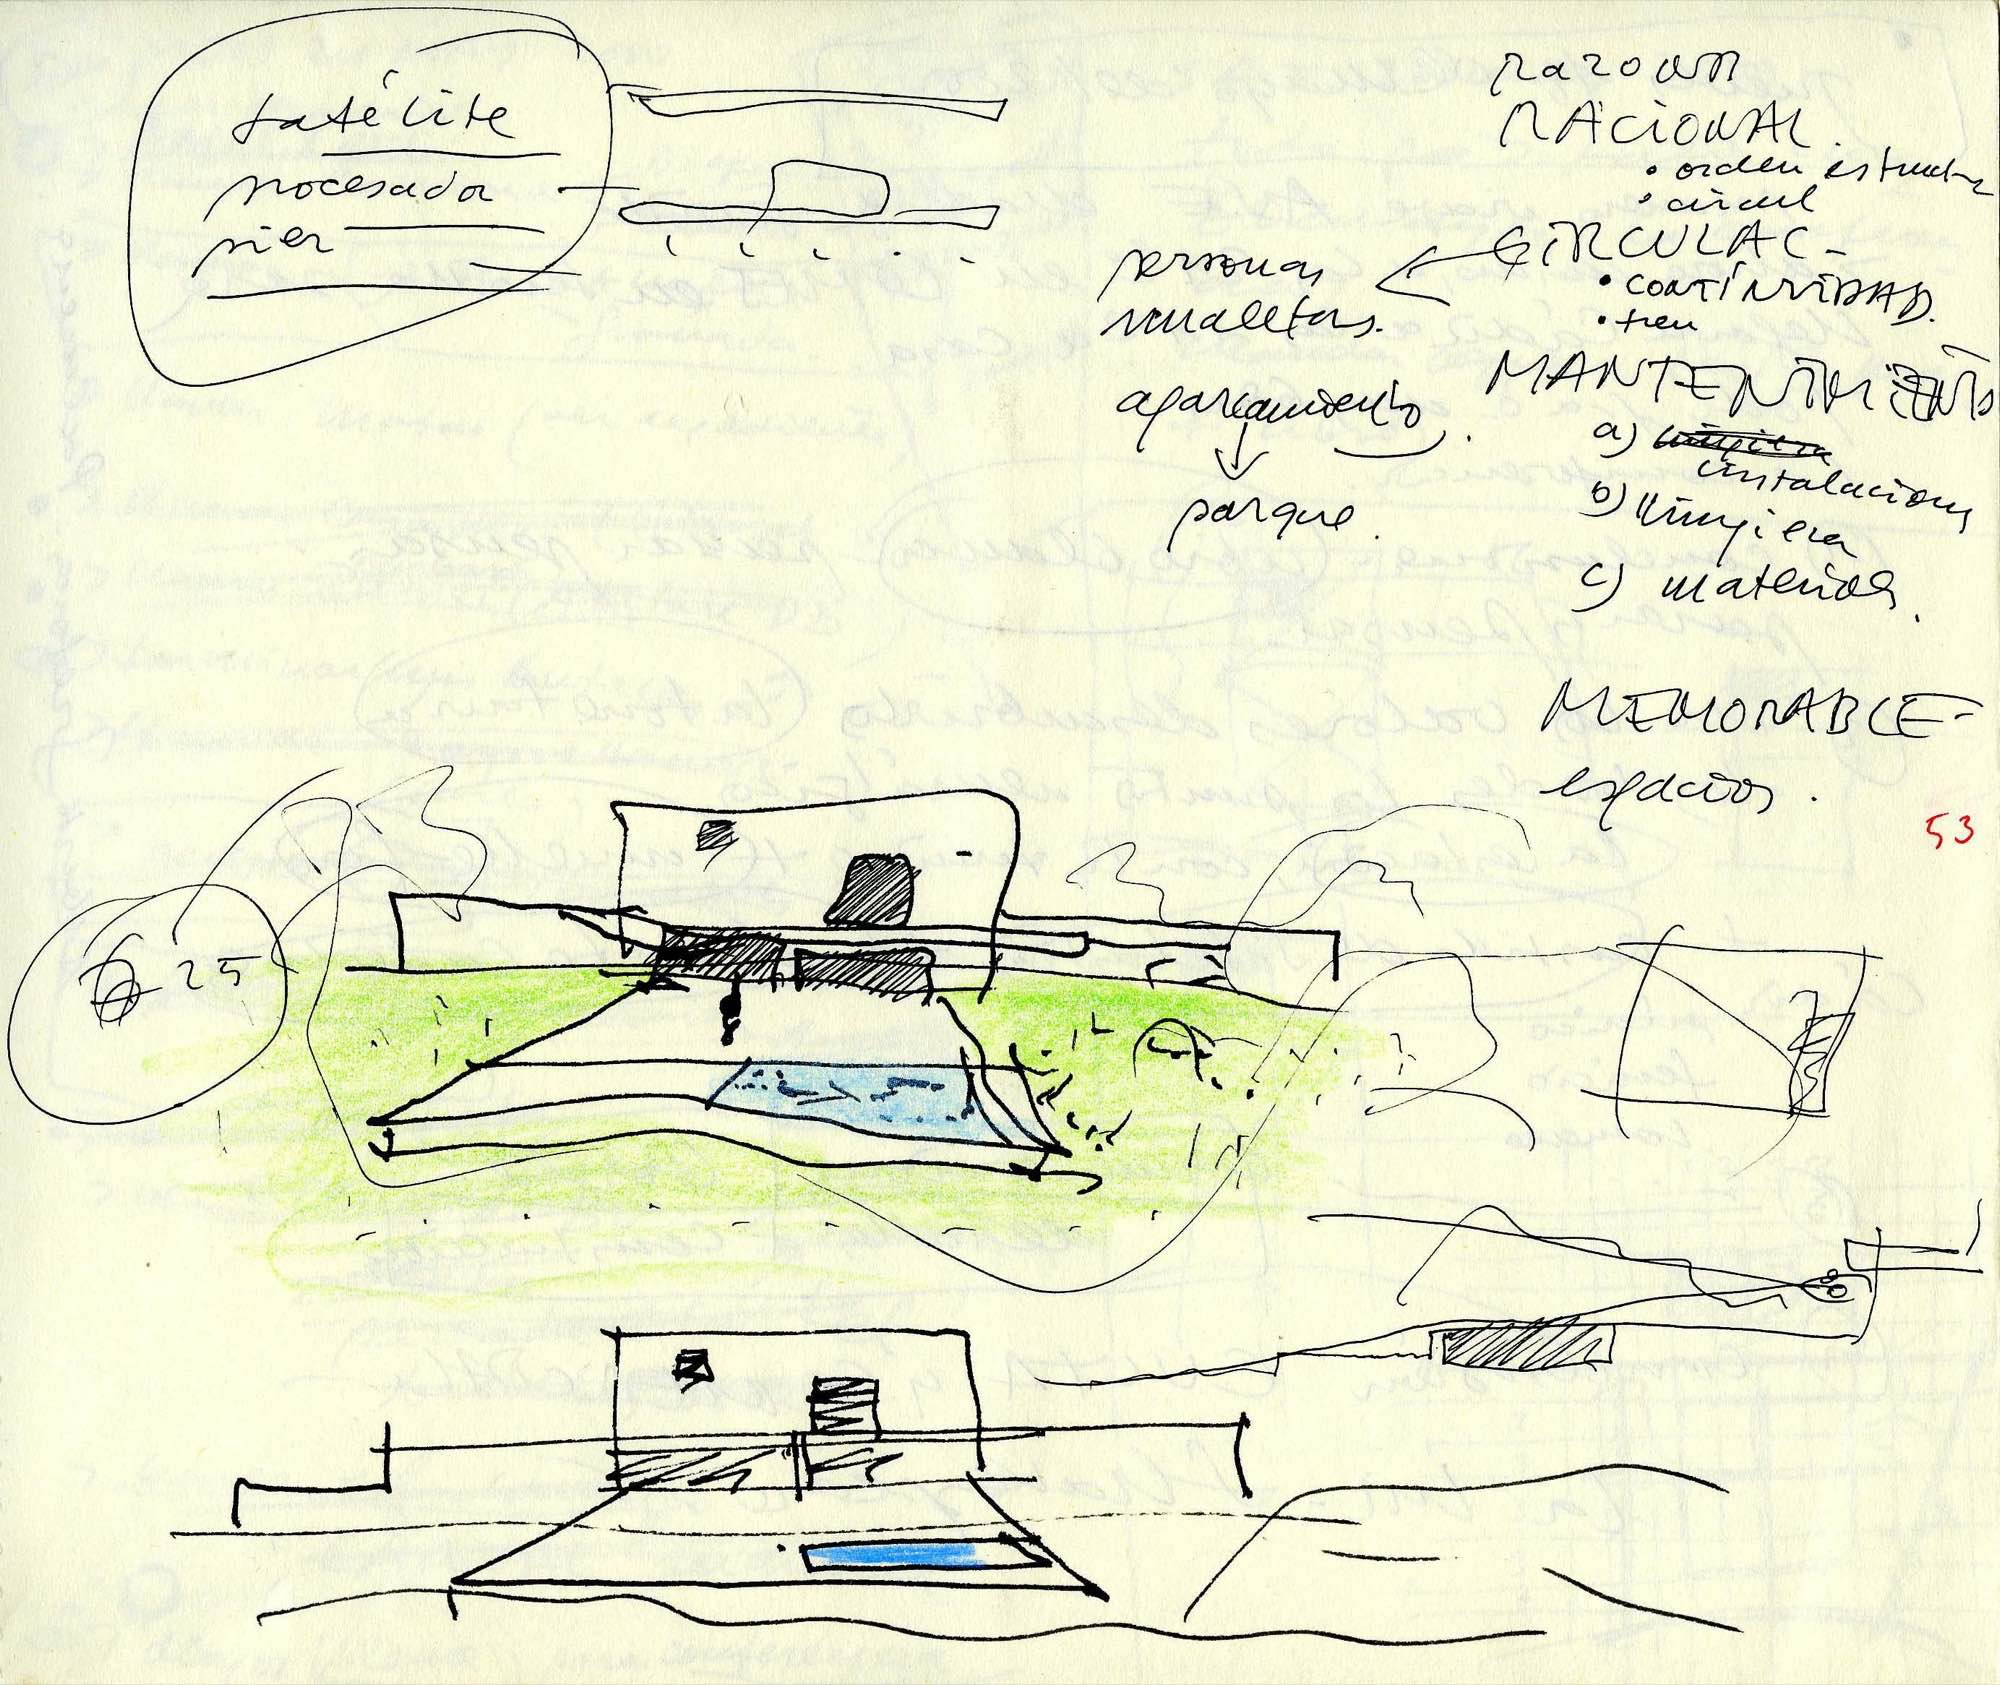 satélite
procesador
pier
RAZONAR
RACIONAL.
• orden estruct
• circul
CIRCULAC-
• CONTINVIDAD.
• tren
personas
maletas.
aparcamiento.
parque.
MANTENIMIENTO
a) limpieza
instalacions
b) limpieza
c) materiales.
MEMORABLE-
espacios.
53
25